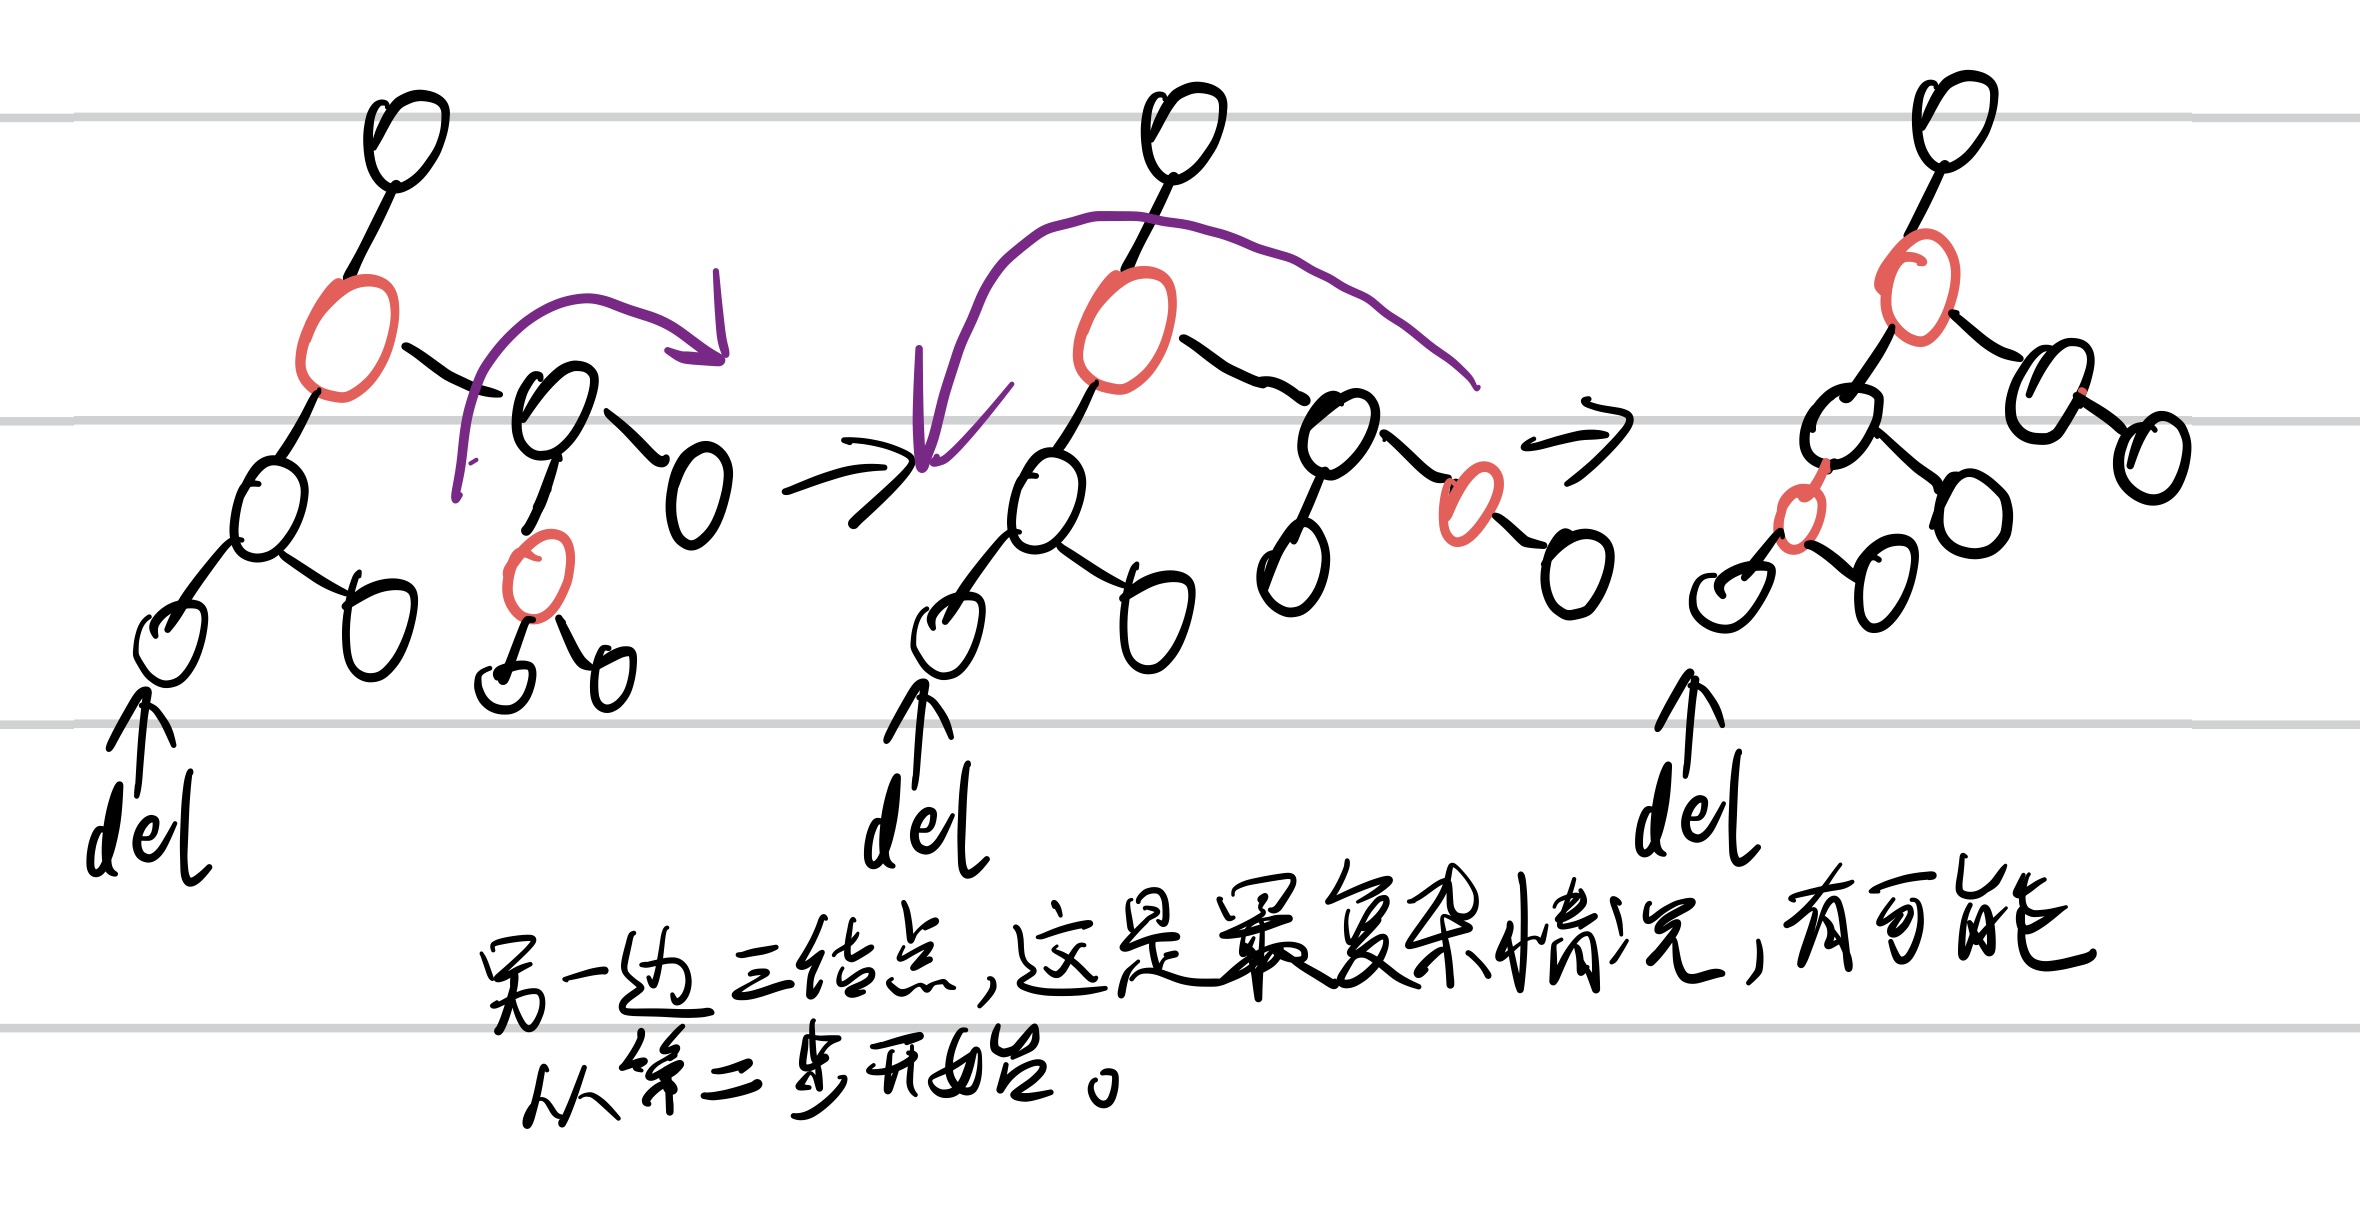 del del del
另一边三结点,这是最复杂情况,有可能
从第二步开始。